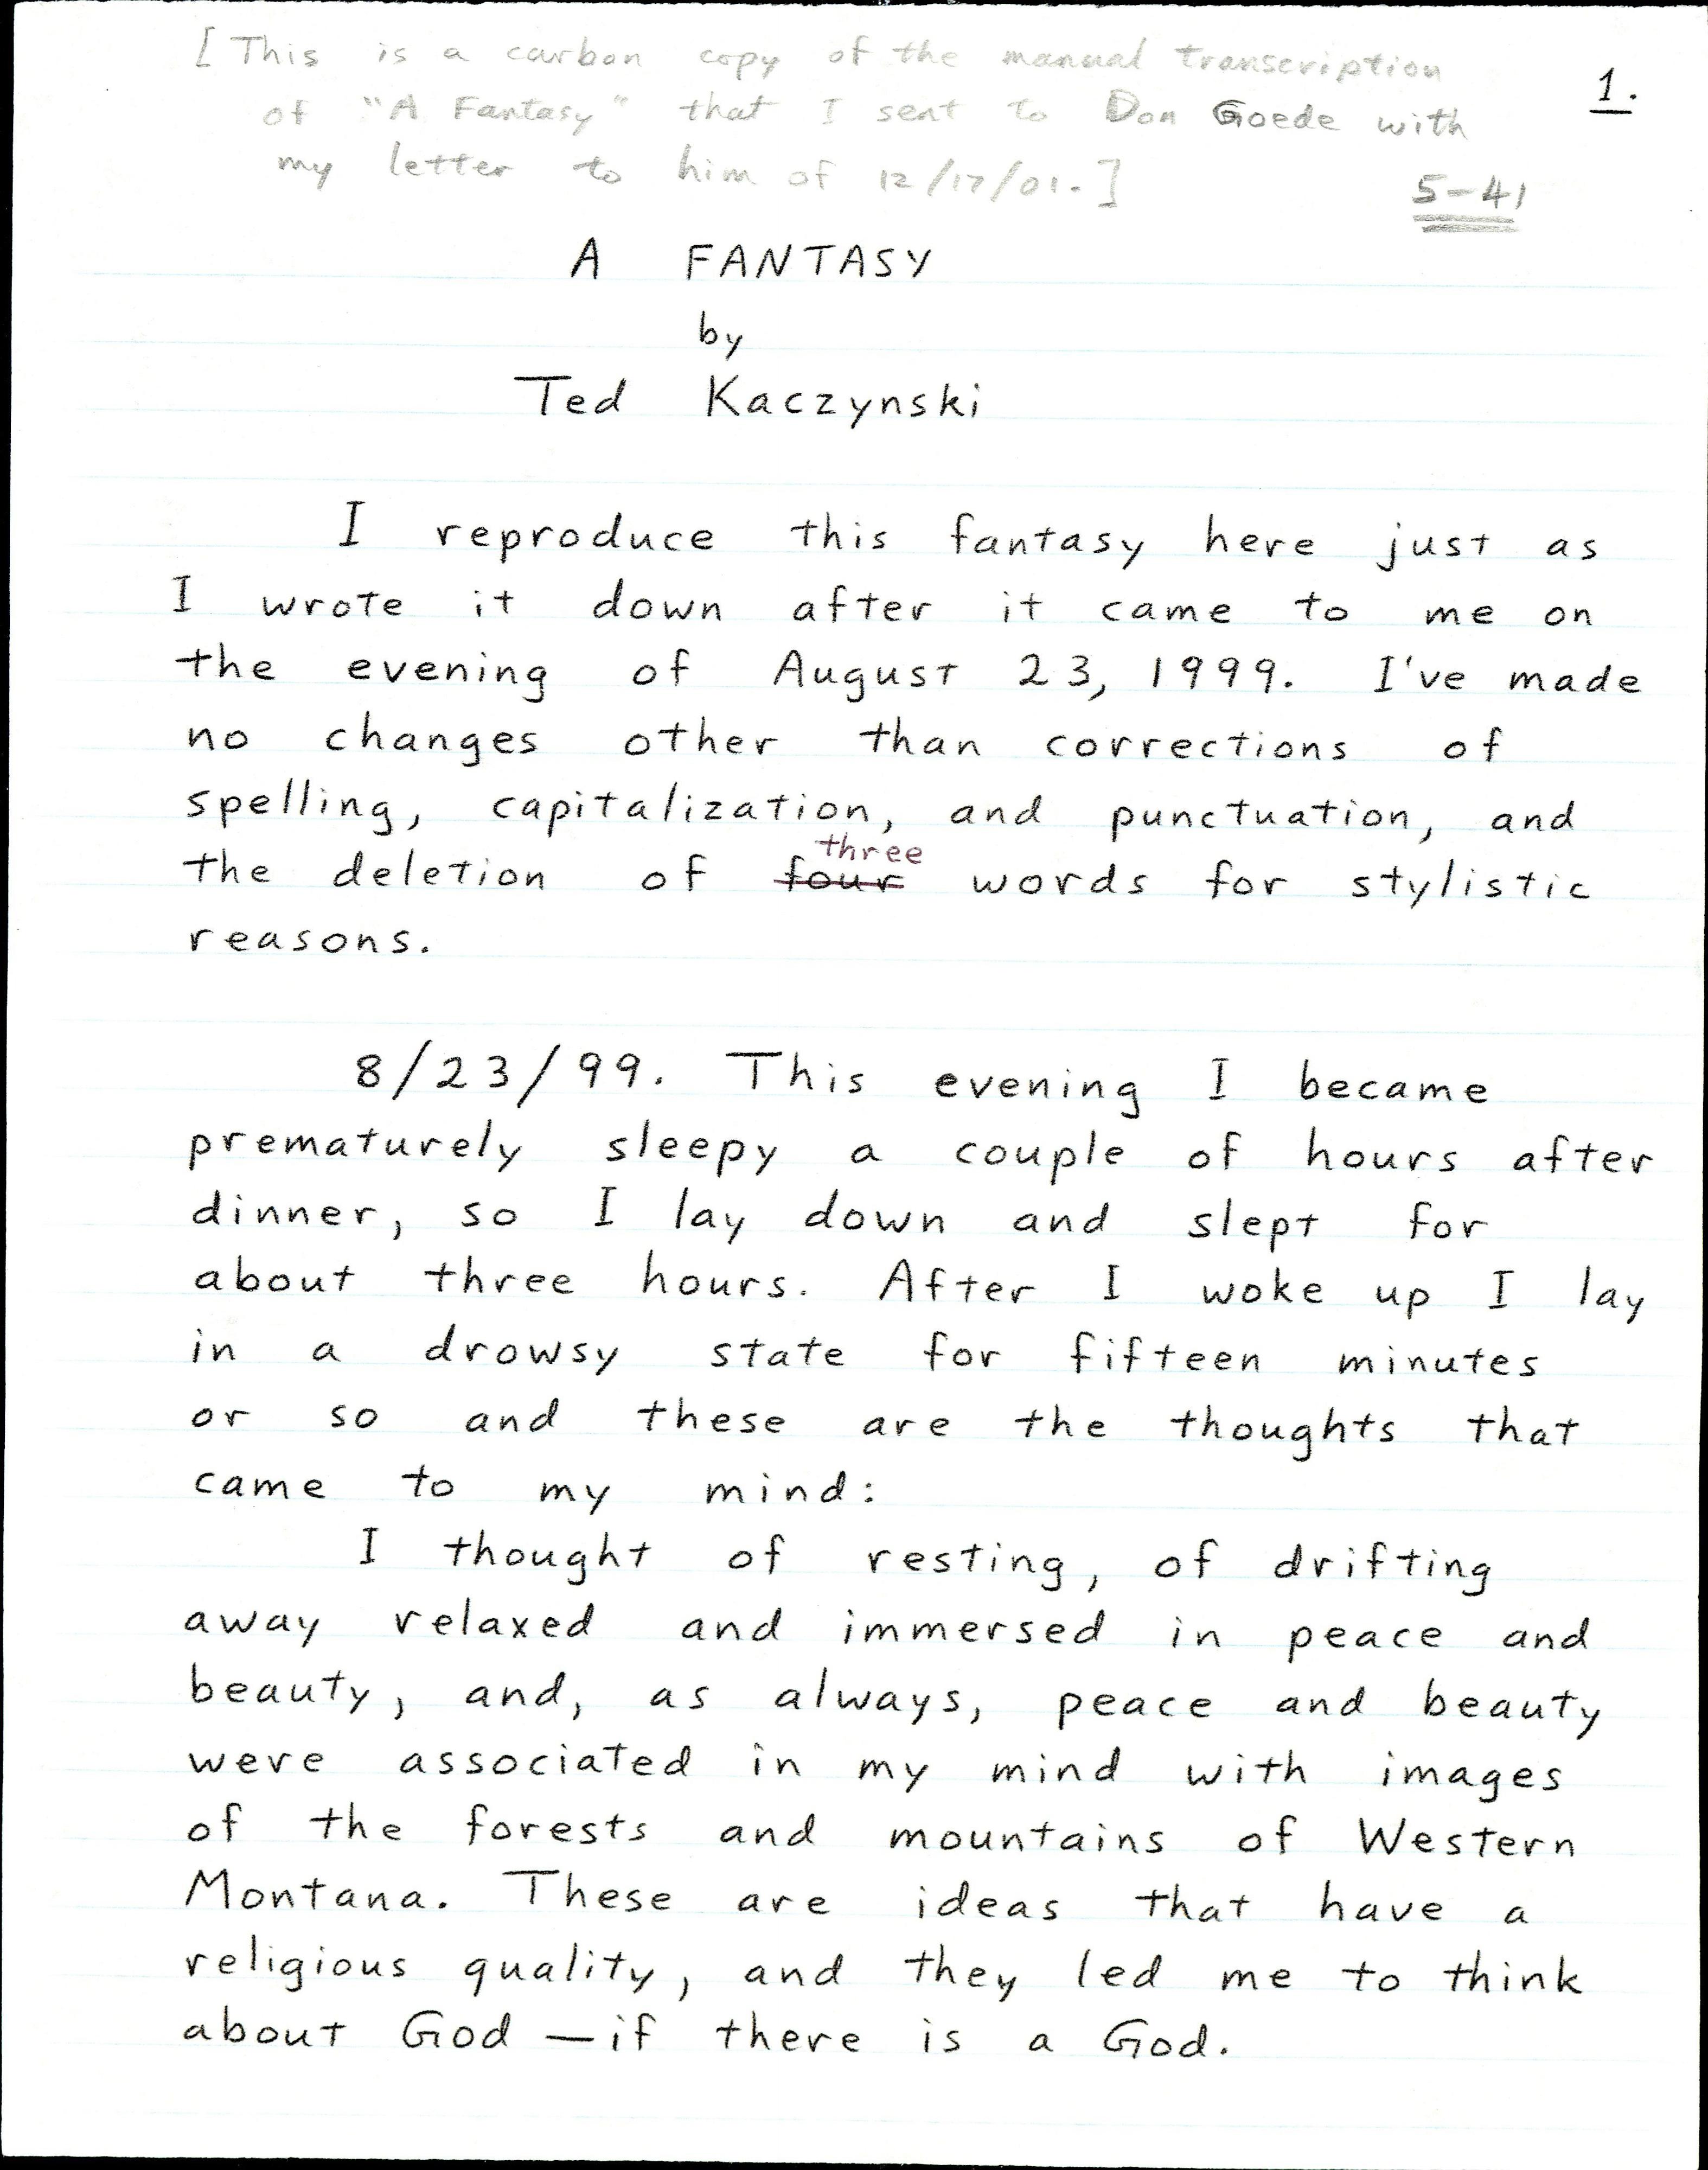 [This is a carbon copy of the manual transcription
1.
of "A Fantasy" that I sent to Don Goede with
my letter to him of 12/17/01.]
5-41
A FANTASY
by
Ted Kaczynski
I reproduce this fantasy here just as
I wrote it down after it came to me on
the evening of August 23, 1999. I've made
no changes other than corrections of
spelling, capitalization, and punctuation, and
three
the deletion of four words for stylistic
reasons.
8/23/99. This evening I became
prematurely sleepy a couple of hours after
dinner, so I lay down and slept for
about three hours. After I woke up I lay
in a drowsy state for fifteen minutes
or so and these are the thoughts that
came to my mind:
I thought of resting, of drifting
away relaxed and immersed in peace and
beauty, and, as always, peace and beauty
were associated in my mind with images
of the forests and mountains of Western
Montana. These are ideas that have a
religious quality, and they led me to think
about God —if there is a God.